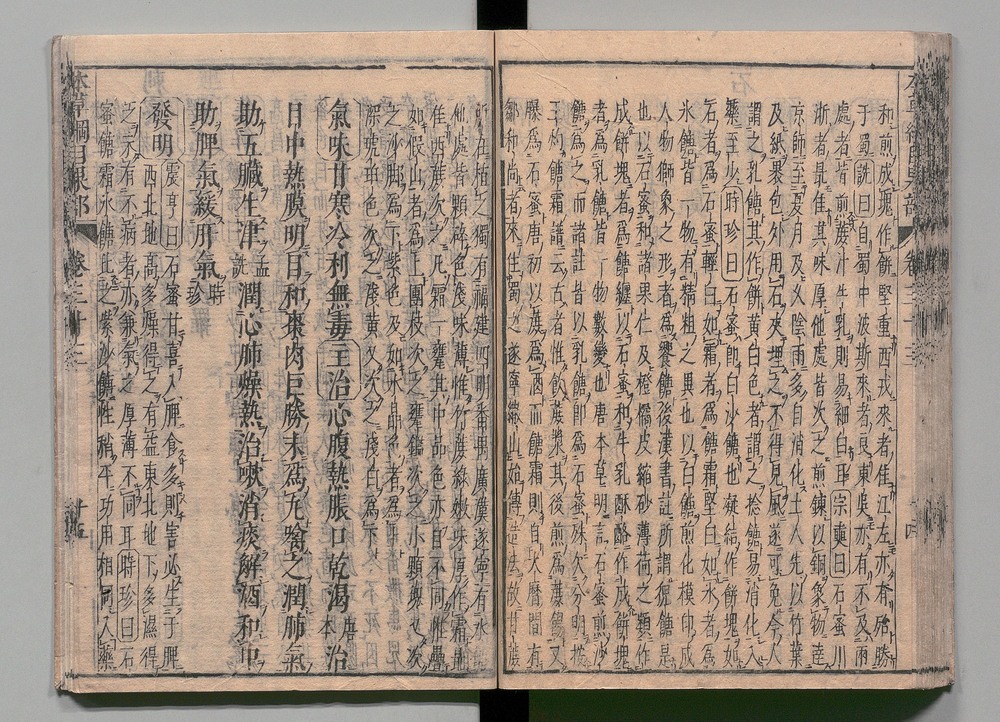 和煎成塊作餅堅重西戎來者佳江左亦有殆勝
于蜀詵曰自蜀中波斯來者良東吳亦有不及兩
處者皆煎蔗汁牛乳則易細白耳宗奭曰石蜜川
浙者最佳其味厚他處皆次之煎鍊以銅象物達
京師至夏月及久陰雨多自消化土人先以竹葉
及紙裹包外用石灰埋之不得見風遂可免今人
謂之乳餹其作餅黃白色者謂之捻餹易消化入
藥至少時珍曰石蜜即白沙餹也凝結作餅塊如
石者爲石蜜輕白如霜者爲餹霜堅白如冰者爲
冰餹皆一物有精粗之異也以白餹煎化模印成
人物獅象之形者爲饗餹後漢書註所謂猊餹是
也以石蜜和諸果仁及橙橘皮縮砂薄荷之類作
成餅塊者爲餹纏以石蜜和牛乳酥酪作成餅塊
者爲乳餹皆一物數變也唐本草明言石蜜煎沙
餹爲之而諸註皆以乳餹即爲石蜜殊欠分明按
王灼餹霜譜云古者惟飲蔗漿其後煎爲蔗餳又
曝爲石蜜唐初以蔗爲酒而餹霜則自大曆間有
鄒和尚者來住蜀之遂寧繖山始傳造法故甘蔗
所在植之獨有福建四明番禺廣漢遂寧有冰餹
他處皆顆碎色淺味薄惟竹蔗綠嫩味厚作霜最
佳西蔗次之凡霜一甕其中品色亦自不同惟疊
如假山者爲上團枝次之甕鑑次之小顆塊又次
之沙腳爲下紫色及如水晶色者爲上
深琥珀色次之淺黃又次之淺白爲下
氣味甘寒冷利無毒主治心腹熱脹口乾渴唐本治
目中熱膜明目和棗肉巨勝末爲丸噙之潤肺氣
助五臟生津孟詵潤心肺燥熱治嗽消痰解酒和中
助脾氣緩肝氣時珍
發明震亨曰石蜜甘喜入脾食多則害必生于脾
西北地高多燥得之有益東北地下多濕得
之未有不病者亦兼氣之厚薄不同耳時珍曰石
蜜餹霜冰餹比之紫沙餹性稍平功用相同入藥
本草綱目果部
卷三十三